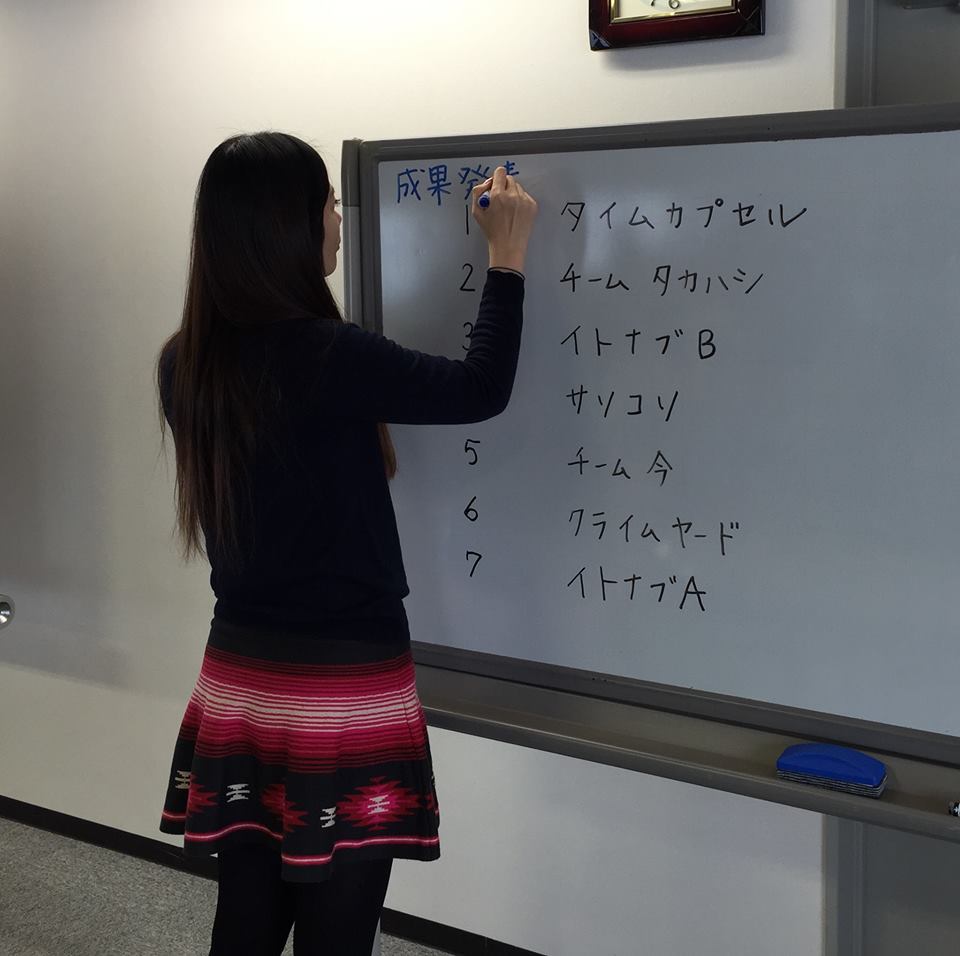 成果発表
1 タイムカプセル
2 チーム タカハシ
3 イトナブ B
サソコソ
5 チーム 今
6 クライム ヤード
7 イトナブ A